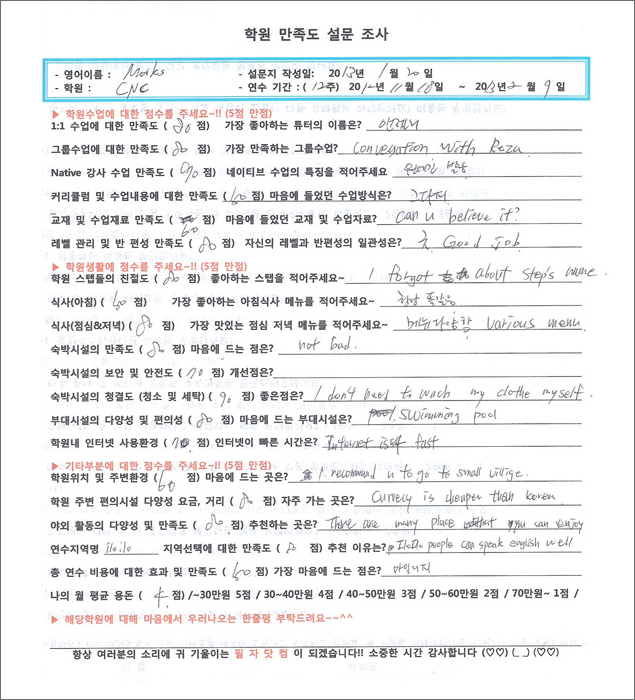 학원 만족도 설문 조사
- 영어이름 : Marks - 설문지 작성일: 2013년 1월 20일
- 학원 : CNC - 연수 기간 : (12주) 2012년 11월 18일 ~ 2013년 2월 9일
▶ 학원수업에 대한 점수를 주세요~!! (5점 만점)
1:1 수업에 대한 만족도 ( 80 점) 가장 좋아하는 튜터의 이름은?
그룹수업에 대한 만족도 ( 80 점) 가장 만족하는 그룹수업? Convegation with Reza
Native 강사 수업 만족도 ( 90 점) 네이티브 수업의 특징을 적어주세요 발음
커리큘럼 및 수업내용에 대한 만족도 ( 60 점) 마음에 들었던 수업방식은? 그다지
교재 및 수업재료 만족도 ( 60 점) 마음에 들었던 교재 및 수업자료? Can u believe it?
레벨 관리 및 반 편성 만족도 ( 80 점) 자신의 레벨과 반편성의 일관성은? Good job.
▶ 학원생활에 점수를 주세요~!! (5점 만점)
학원 스텝들의 친절도 ( 80 점) 좋아하는 스탭을 적어주세요~ I forgot about step's name.
식사(아침) ( 60 점) 가장 좋아하는 아침식사 메뉴를 적어주세요~ 항상 똑같음
식사(점심&저녁) ( 80 점) 가장 맛있는 점심 저녁 메뉴를 적어주세요~ 메뉴다양함 various menu
숙박시설의 만족도 ( 80 점) 마음에 드는 점은? not bad.
숙박시설의 보안 및 안전도 ( 70 점) 개선점은?
숙박시설의 청결도 (청소 및 세탁) ( 90 점) 좋은점은? I don't need to wach my clothe myself.
부대시설의 다양성 및 편의성 ( 80 점) 마음에 드는 부대시설은? swimming pool
학원내 인터넷 사용환경 ( 70 점) 인터넷이 빠른 시간은? Internet is fast
▶ 기타부분에 대한 점수를 주세요~!! (5점 만점)
학원위치 및 주변환경 ( 60 점) 마음에 드는 곳은? I recommand u to go to small villige.
학원 주변 편의시설 다양성 요금, 거리 ( 80 점) 자주 가는 곳은? Curvely is cheaper than korea
야외 활동의 다양성 및 만족도 ( 80 점) 추천하는 곳은? There are many place that you can enjoy
연수지역명 iloilo 지역선택에 대한 만족도 ( 80 점) 추천 이유는? IloIlo people can speak english well
총 연수 비용에 대한 효과 및 만족도 ( 60 점) 가장 마음에 드는 점은?
나의 월 평균 용돈 ( 4 점) /~30만원 5점 / 30~40만원 4점 / 40~50만원 3점 / 50~60만원 2점 / 70만원~ 1점 /
▶ 해당학원에 대해 마음에서 우러나오는 한줄평 부탁드려요~~^^
항상 여러분의 소리에 귀 기울이는 필 자 닷 컴 이 되겠습니다!! 소중한 시간 감사합니다 (♡♡) (_ _) (♡♡)